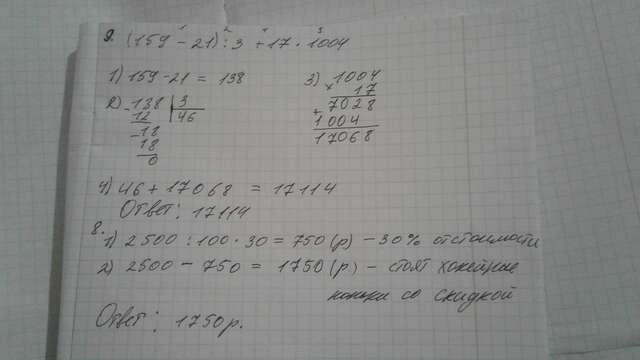 1 2 4 3
9. (159 - 21) : 3 + 17 · 1004
1) 159 - 21 = 138
2) - 138 | 3
12 46
- 18
18
0
3) × 1004
17
+ 7028
1004
17068
4) 46 + 17068 = 17114
Ответ: 17114
8.
1) 2500 : 100 · 30 = 750 (р) - 30% от стоимости
2) 2500 - 750 = 1750 (р) - стоят хоккейные
коньки со скидкой
Ответ: 1750 р.